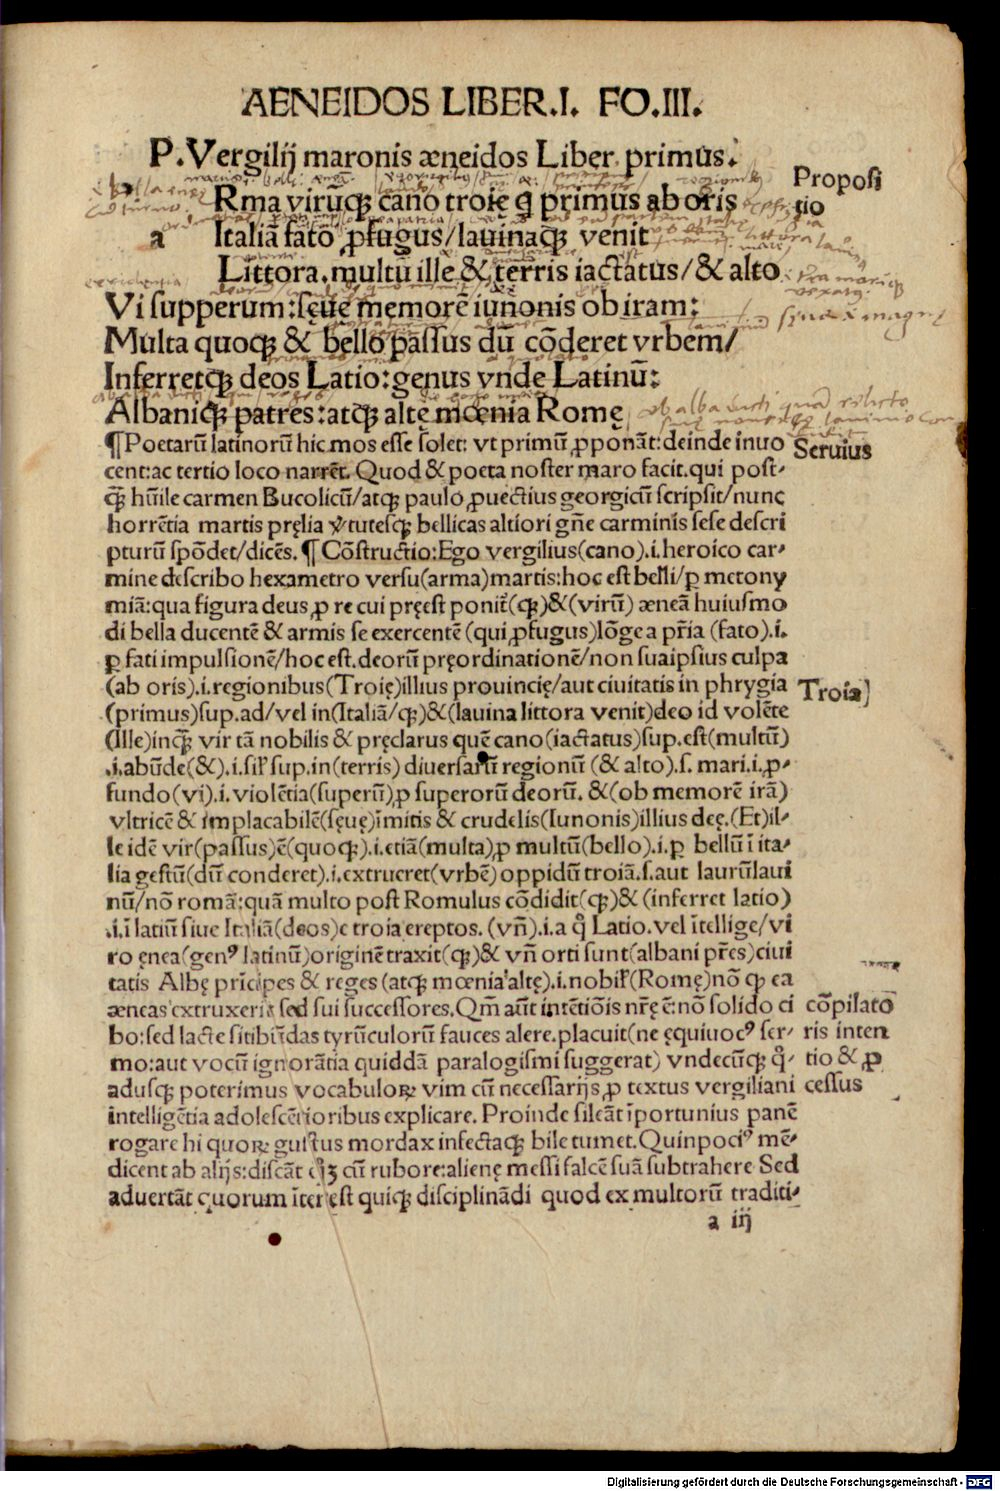 AENEIDOS LIBER.I. FO.III.
P.Vergilij maronis æneidos Liber primus.
Proposi
tio
a
Rma virūqꝫ cano troię q̄ primus ab oris
Italiā fato ꝓfugus/lauinaqꝫ venit
Littora.multū ille & terris iactatus/& alto
Vi supperum:sęue memorē iunonis ob iram:
Multa quoqꝫ & bello passus dū cōderet vrbem/
Inferretqꝫ deos Latio:genus vnde Latinū:
Albaniqꝫ patres:atqꝫ altę mœnia Romę
Seruius
¶Poetarū latinorū hic mos esse solet: vt primū ꝓponāt:deinde inuo
cent:ac tertio loco narrēt. Quod & poeta noster maro facit.qui post-
qꝫ̄ hūile carmen Bucolicū/atqꝫ paulo ꝓuectius georgicū scripsit/nunc
horrētia martis pręlia v̓tutesqꝫ bellicas altiori gn̄e carminis sese descri
pturū spōdet/dicēs.¶Cōstructio:Ego vergilius(cano).i.heroico car-
mine describo hexametro versu(arma)martis:hoc est belli/ꝑ metony
miā:qua figura deus ꝓ re cui pręest ponit̄(qꝫ)&(virū) æneā huiusmo
di bella ducentē & armis se exercentē(qui ꝓfugus)lōge a pr̄ia (fato).i.
ꝑ fati impulsionē/hoc est.deorū pręordinationē/non suaipsius culpa
(ab oris).i.regionibus(Troię)illius prouincię/aut ciuitatis in phrygia
Troia)
(primus)sup.ad/vel in(Italiā/qꝫ)&(lauina littora venit)deo id volēte
(Ille)inqꝫ̄ vir tā nobilis & pręclarus quē cano(iactatus)sup.est(multū)
.i.abūde(&).i.sil̓r sup.in(terris) diuersarū regionū (& alto).s. mari.i.ꝓ-
fundo(vi).i.violētia(superū)ꝓ superorū deorū. &(ob memorē irā)
vltricē & implacabilē(sęuę)īmitis & crudelis(Iunonis)illius deę.(Et)il-
le idē vir(passus)ē(quoqꝫ).i.etiā(multa)ꝓ multū(bello).i.ꝑ bellū ī ita-
lia gestū(dū conderet).i.extrueret(vrbē)oppidū troiā.s.aut laurūlaui
nū/nō romā:quā multo post Romulus cōdidit(qꝫ)&(inferret latio)
.i.ī latiū siue Italiā(deos)e troia ereptos. (vn̄).i.a q̊ Latio.vel ītellige/vi
ro ęnea(genꝰ latinū)originē traxit(qꝫ)& vn̄ orti sunt(albani pr̄es)ciui
tatis Albę prīcipes & reges (atqꝫ mœnia altę).i.nobil̓(Romę)nō qꝫ ea
æneas extruxerit sed sui successores.Qm̄ aūt intētiōis nr̄ę ē:nō solido ci
cōpilato
ris inten
tio & ꝓ
cessus
bo:sed lacte sitibūdas tyrūculorū fauces alere.placuit(ne ęquiuocꝰ ser-
mo:aut vocū ignorātia quiddā paralogismi suggerat) vndecūqꝫ q̊-
adusqꝫ poterimus vocabuloꝝ vim cū necessarijs ꝓ textus vergiliani
intelligētia adolescētioribus explicare. Proinde sileāt īportunius panē
rogare hi quoꝝ gustus mordax infectaqꝫ bile tumet.Quinpociꝰ mē-
dicent ab alijs:discāt cū rubore:alienę messi falcē suā subtrahere Sed
aduertāt quorum īterest quiqꝫ disciplināndi quod ex multorū traditi-
a iij
Digitalisierung gefördert durch die Deutsche Forschungsgemeinschaft - DFG